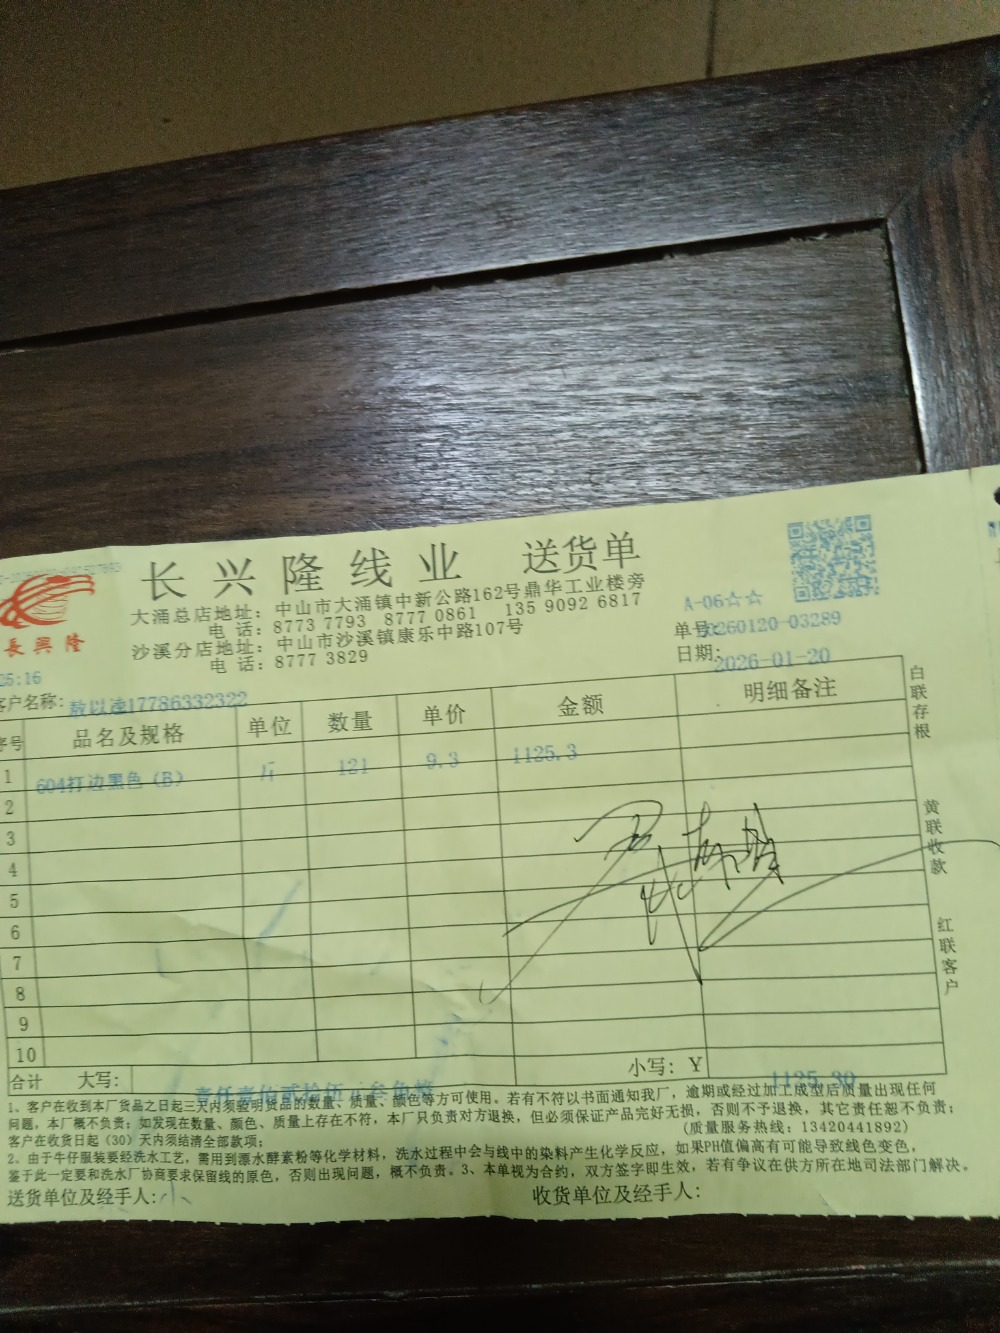 长兴隆线业 送货单
長興隆
大涌总店地址：中山市大涌镇中新公路162号鼎华工业楼旁
电 话：8773 7793 8777 0861 135 9092 6817
沙溪分店地址：中山市沙溪镇康乐中路107号
电 话：8777 3829
A-06☆☆
单号:20260120-03289
日期:2026-01-20
25:16
客户名称:敖以速17786332322
序号 品名及规格 单位 数量 单价 金额 明细备注
1 604打边黑色（B） 斤 121 9.3 1125.3
2
3
4
5
6
7
8
9
10
合计 大写: 小写: Y 1125.30
白联存根
黄联收款
红联客户
1、客户在收到本厂货品之日起三天内须验明货品的数量、质量、颜色等方可使用。若有不符以书面通知我厂，逾期或经过加工成型后质量出现任何
问题，本厂概不负责；如发现在数量、颜色、质量上存在不符，本厂只负责对方退换，但必须保证产品完好无损，否则不予退换，其它责任恕不负责；
客户在收货日起（30）天内须结清全部款项； (质量服务热线：13420441892)
2、由于牛仔服装要经洗水工艺，需用到漂水酵素粉等化学材料，洗水过程中会与线中的染料产生化学反应，如果PH值偏高有可能导致线色变色，
鉴于此一定要和洗水厂协商要求保留线的原色，否则出现问题，概不负责。3、本单视为合约，双方签字即生效，若有争议在供方所在地司法部门解决。
送货单位及经手人: 收货单位及经手人: